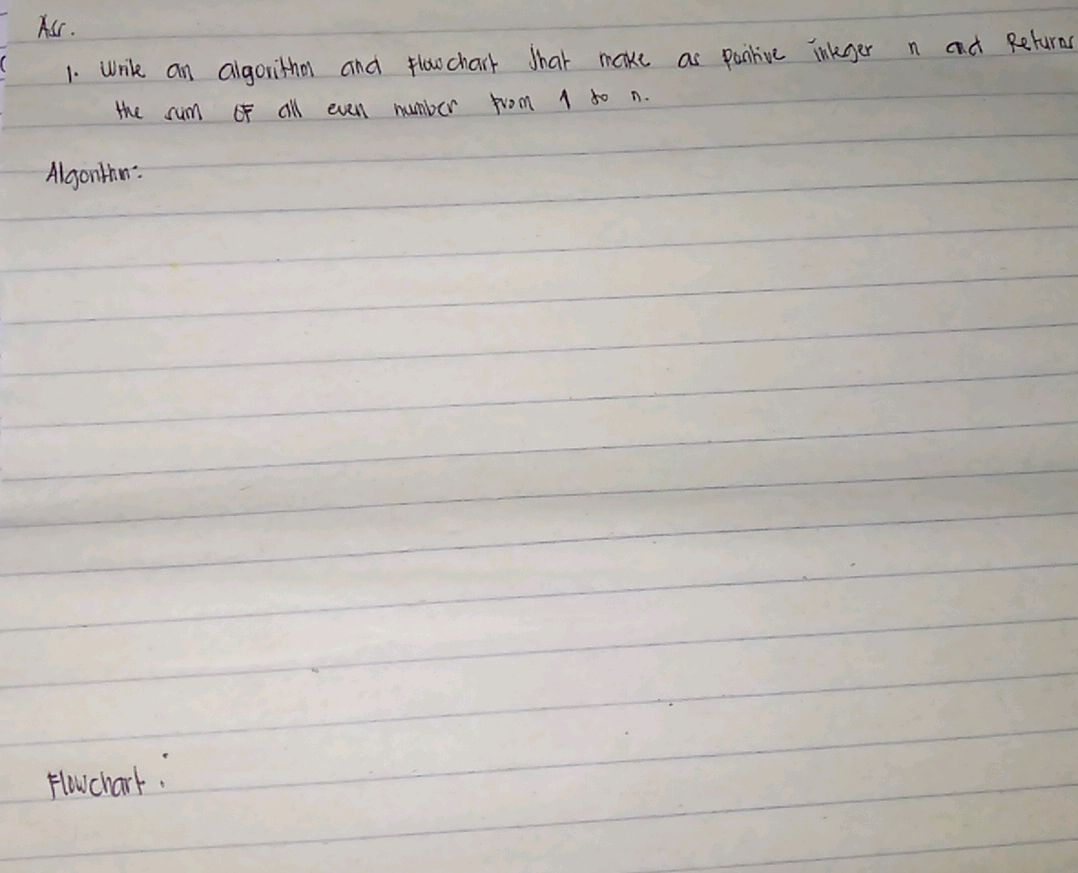 Ass.
1. Write an algorithm and flowchart that make as positive integer n and Returns
the sum OF all even number from 1 to n.
Algorithm:
Flowchart: